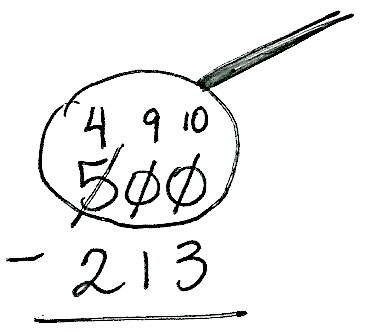 4 9 10
500
- 213